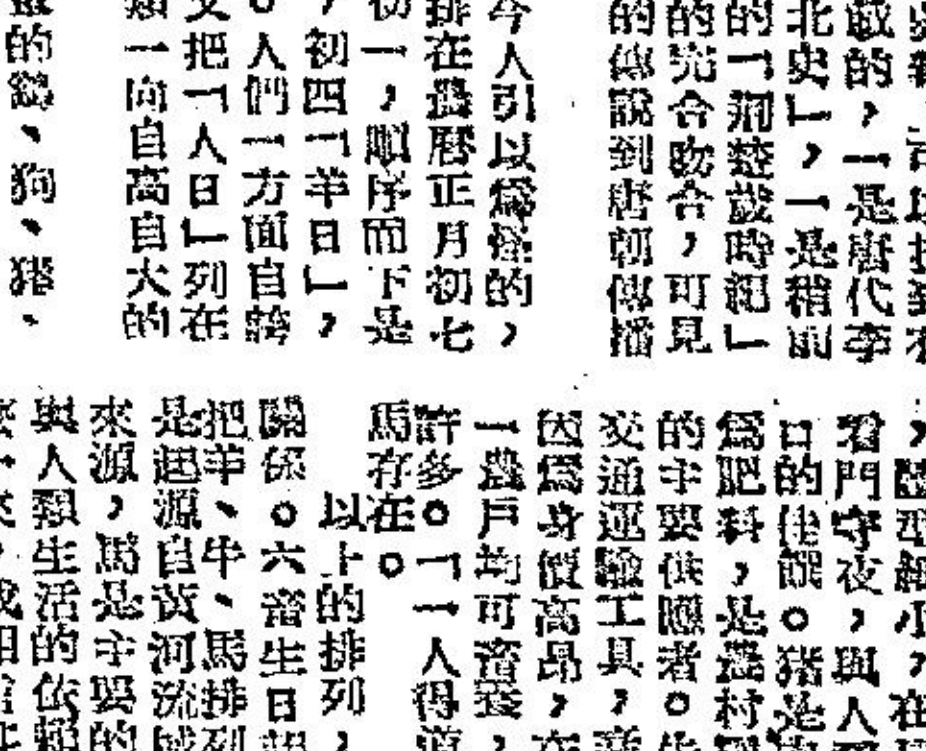 戲的，一是唐代李
北史」，一是稍前
的「荊楚歲時紀」
的完合吻合，可見
的傳說到唐朝傳播
今人引以爲怪的，
排在農曆正月初七
初一，順序而下是
，初四「羊日」，
。人們一方面自誇
又把「人日」列在
類一向自高自大的
的鷄、狗、猪、
，體型細小，在
看門守夜，與人
口的佳餚。猪是
爲肥料，是農村
的主要供應者。牛
交通運輸工具，
因爲身價高昂，在
一農戶均可畜養，
許多。「一人得道
馬存在。
以上的排列，
關係。六畜生日
把羊、牛、馬排列
是起源自黃河流域
來源，馬是主要的
與人類生活的依賴